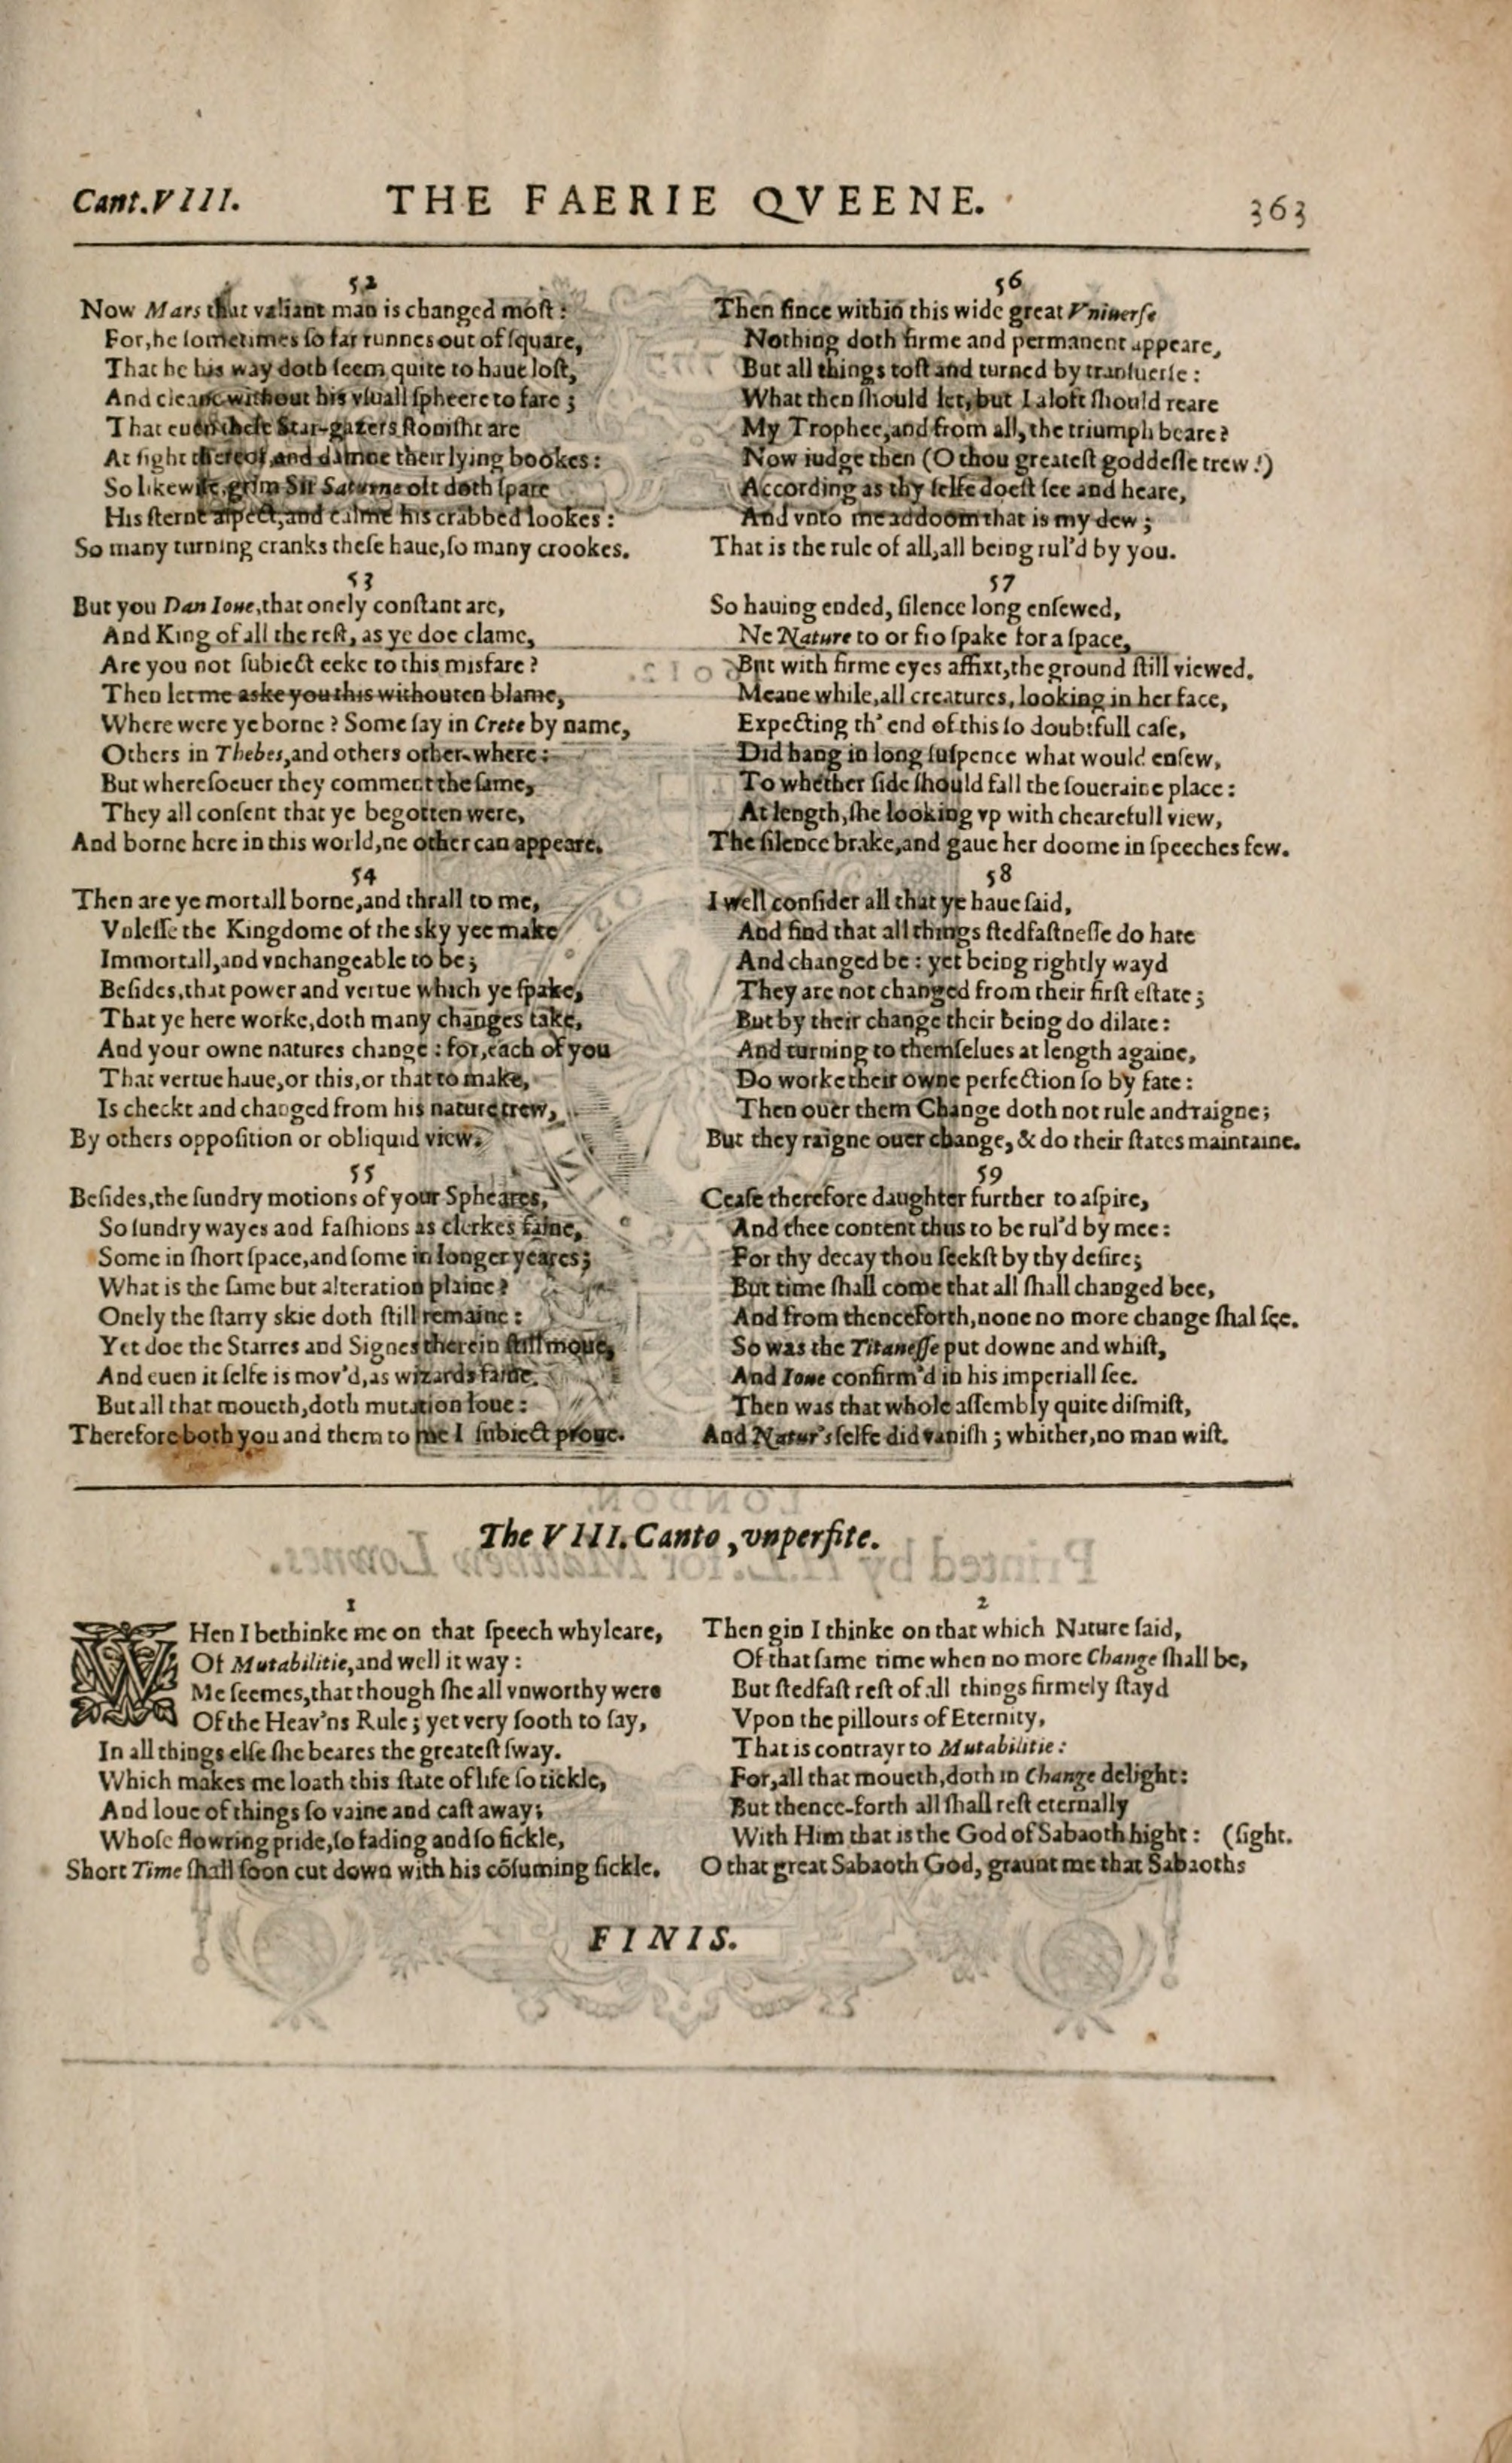 Cant.VIII. THE FAERIE QVEENE. 363
52
Now Mars that valiant man is changed moſt:
For, he ſometimes ſo far runnes out of ſquare,
That he his way doth ſeem quite to haue loſt,
And cleane without his vſuall ſpheere to fare;
That euen theſe Star-gazers ſtoniſht are
At ſight thereof, and damne their lying bookes:
So likewiſe, grim Sir Saturne oft doth ſpare
His ſterne aſpect, and calme his crabbed lookes:
So many turning cranks theſe haue, ſo many crookes.
53
But you Dan Ioue, that onely conſtant are,
And King of all the reſt, as ye doe clame,
Are you not ſubiect eeke to this misfare?
Then let me aske you this withouten blame,
Where were ye borne? Some ſay in Crete by name,
Others in Thebes, and others other-where:
But whereſoeuer they comment the ſame,
They all conſent that ye begotten were,
And borne here in this world, ne other can appeare.
54
Then are ye mortall borne, and thrall to me,
Vnleſſe the Kingdome of the sky yee make
Immortall, and vnchangeable to be;
Beſides, that power and vertue which ye ſpake,
That ye here worke, doth many changes take,
And your owne natures change: for, each of you
That vertue haue, or this, or that to make,
Is checkt and changed from his nature trew,
By others oppoſition or obliquid view.
55
Beſides, the ſundry motions of your Spheares,
So ſundry wayes and faſhions as clerkes faine,
Some in ſhort ſpace, and ſome in longer yeares;
What is the ſame but alteration plaine?
Onely the ſtarry skie doth ſtill remaine:
Yet doe the Starres and Signes therein ſtill moue,
And euen it ſelfe is mov'd, as wizards faine.
But all that moueth, doth mutation loue:
Therefore both you and them to me I ſubiect proue.
56
Then ſince within this wide great Vniuerſe
Nothing doth firme and permanent appeare,
But all things toſt and turned by tranſuerſe:
What then ſhould let, but I aloft ſhould reare
My Trophee, and from all, the triumph beare?
Now iudge then (O thou greateſt goddeſſe trew!)
According as thy ſelfe doeſt ſee and heare,
And vnto me addoom that is my dew;
That is the rule of all, all being rul'd by you.
57
So hauing ended, ſilence long enſewed,
Ne Nature to or fro ſpake for a ſpace,
But with firme eyes affixt, the ground ſtill viewed.
Meane while, all creatures, looking in her face,
Expecting th' end of this ſo doubtfull caſe,
Did hang in long ſuſpence what would enſew,
To whether ſide ſhould fall the ſoueraine place:
At length, ſhe looking vp with chearefull view,
The ſilence brake, and gaue her doome in ſpeeches few.
58
I well conſider all that ye haue ſaid,
And find that all things ſtedfaſtneſſe do hate
And changed be: yet being rightly wayd
They are not changed from their firſt eſtate;
But by their change their being do dilate:
And turning to themſelues at length againe,
Do worke their owne perfection ſo by fate:
Then ouer them Change doth not rule and raigne;
But they raigne ouer change, & do their ſtates maintaine.
59
Ceaſe therefore daughter further to aſpire,
And thee content thus to be rul'd by mee:
For thy decay thou ſeekſt by thy deſire;
But time ſhall come that all ſhall changed bee,
And from thenceforth, none no more change ſhal ſee.
So was the Titaneſſe put downe and whiſt,
And Ioue confirm'd in his imperiall ſee.
Then was that whole aſſembly quite diſmiſt,
And Natur's ſelfe did vaniſh; whither, no man wiſt.
The VIII. Canto, vnperfite.
1
WHen I bethinke me on that ſpeech whyleare,
Of Mutabilitie, and well it way:
Me ſeemes, that though ſhe all vnworthy were
Of the Heav'ns Rule; yet very ſooth to ſay,
In all things elſe ſhe beares the greateſt ſway.
Which makes me loath this ſtate of life ſo tickle,
And loue of things ſo vaine and caſt away;
Whoſe flowring pride, ſo fading and ſo fickle,
Short Time ſhall ſoon cut down with his cõſuming ſickle.
2
Then gin I thinke on that which Nature ſaid,
Of that ſame time when no more Change ſhall be,
But ſtedfaſt reſt of all things firmely ſtayd
Vpon the pillours of Eternity,
That is contrayr to Mutabilitie:
For, all that moueth, doth in Change delight:
But thence-forth all ſhall reſt eternally
With Him that is the God of Sabaoth hight: (ſight.
O that great Sabaoth God, graunt me that Sabaoths
FINIS.